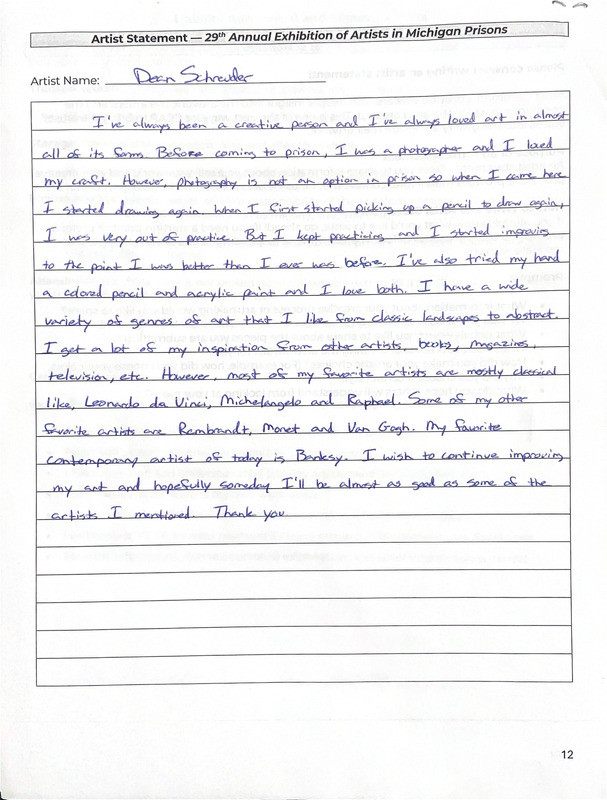 Artist Statement — 29th Annual Exhibition of Artists in Michigan Prisons
Artist Name: Dean Schreuder
I've always been a creative person and I've always loved art in almost
all of its forms. Before coming to prison, I was a photographer and I loved
my craft. However, photography is not an option in prison so when I came here
I started drawing again. When I first started picking up a pencil to draw again,
I was very out of practice. But I kept practicing and I started improving
to the point I was better than I ever was before. I've also tried my hand
a colored pencil and acrylic paint and I love both. I have a wide
variety of genres of art that I like from classic landscapes to abstract.
I get a lot of my inspiration from other artists, books, magazines,
television, etc. However, most of my favorite artists are mostly classical
like, Leonardo da Vinci, Michelangelo and Raphael. Some of my other
favorite artists are Rembrandt, Monet and Van Gogh. My favorite
contemporary artist of today is Banksy. I wish to continue improving
my art and hopefully someday I'll be almost as good as some of the
artists I mentioned. Thank you
12